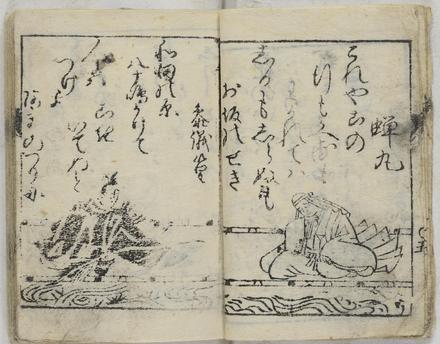 蝉丸
これやこの
行もかへるも
わかれては
しるもしらぬも
あふ坂のせき
参議篁
和田の原
八十嶋かけて
こき出ぬと
人には
つけよ
あまのつりふね